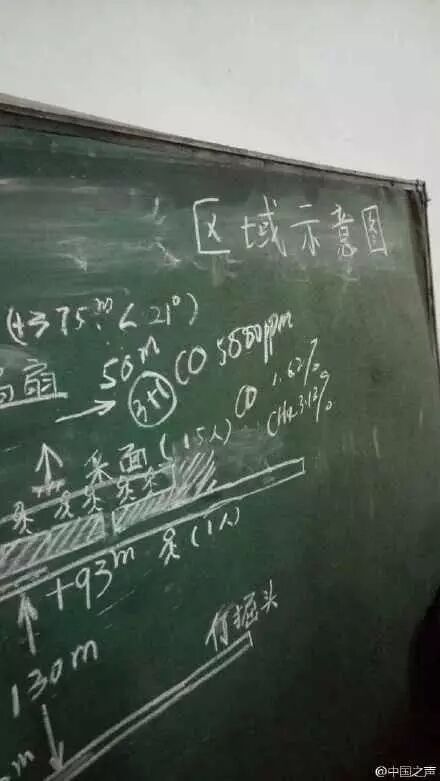 区域示意图
(+375m∠21°)
扇
50m
3+1
CO 5880ppm
CO 1.62%
CH4 3.13%
采面(15人)
+93m (1人)
掘头
130m
m
@中国之声